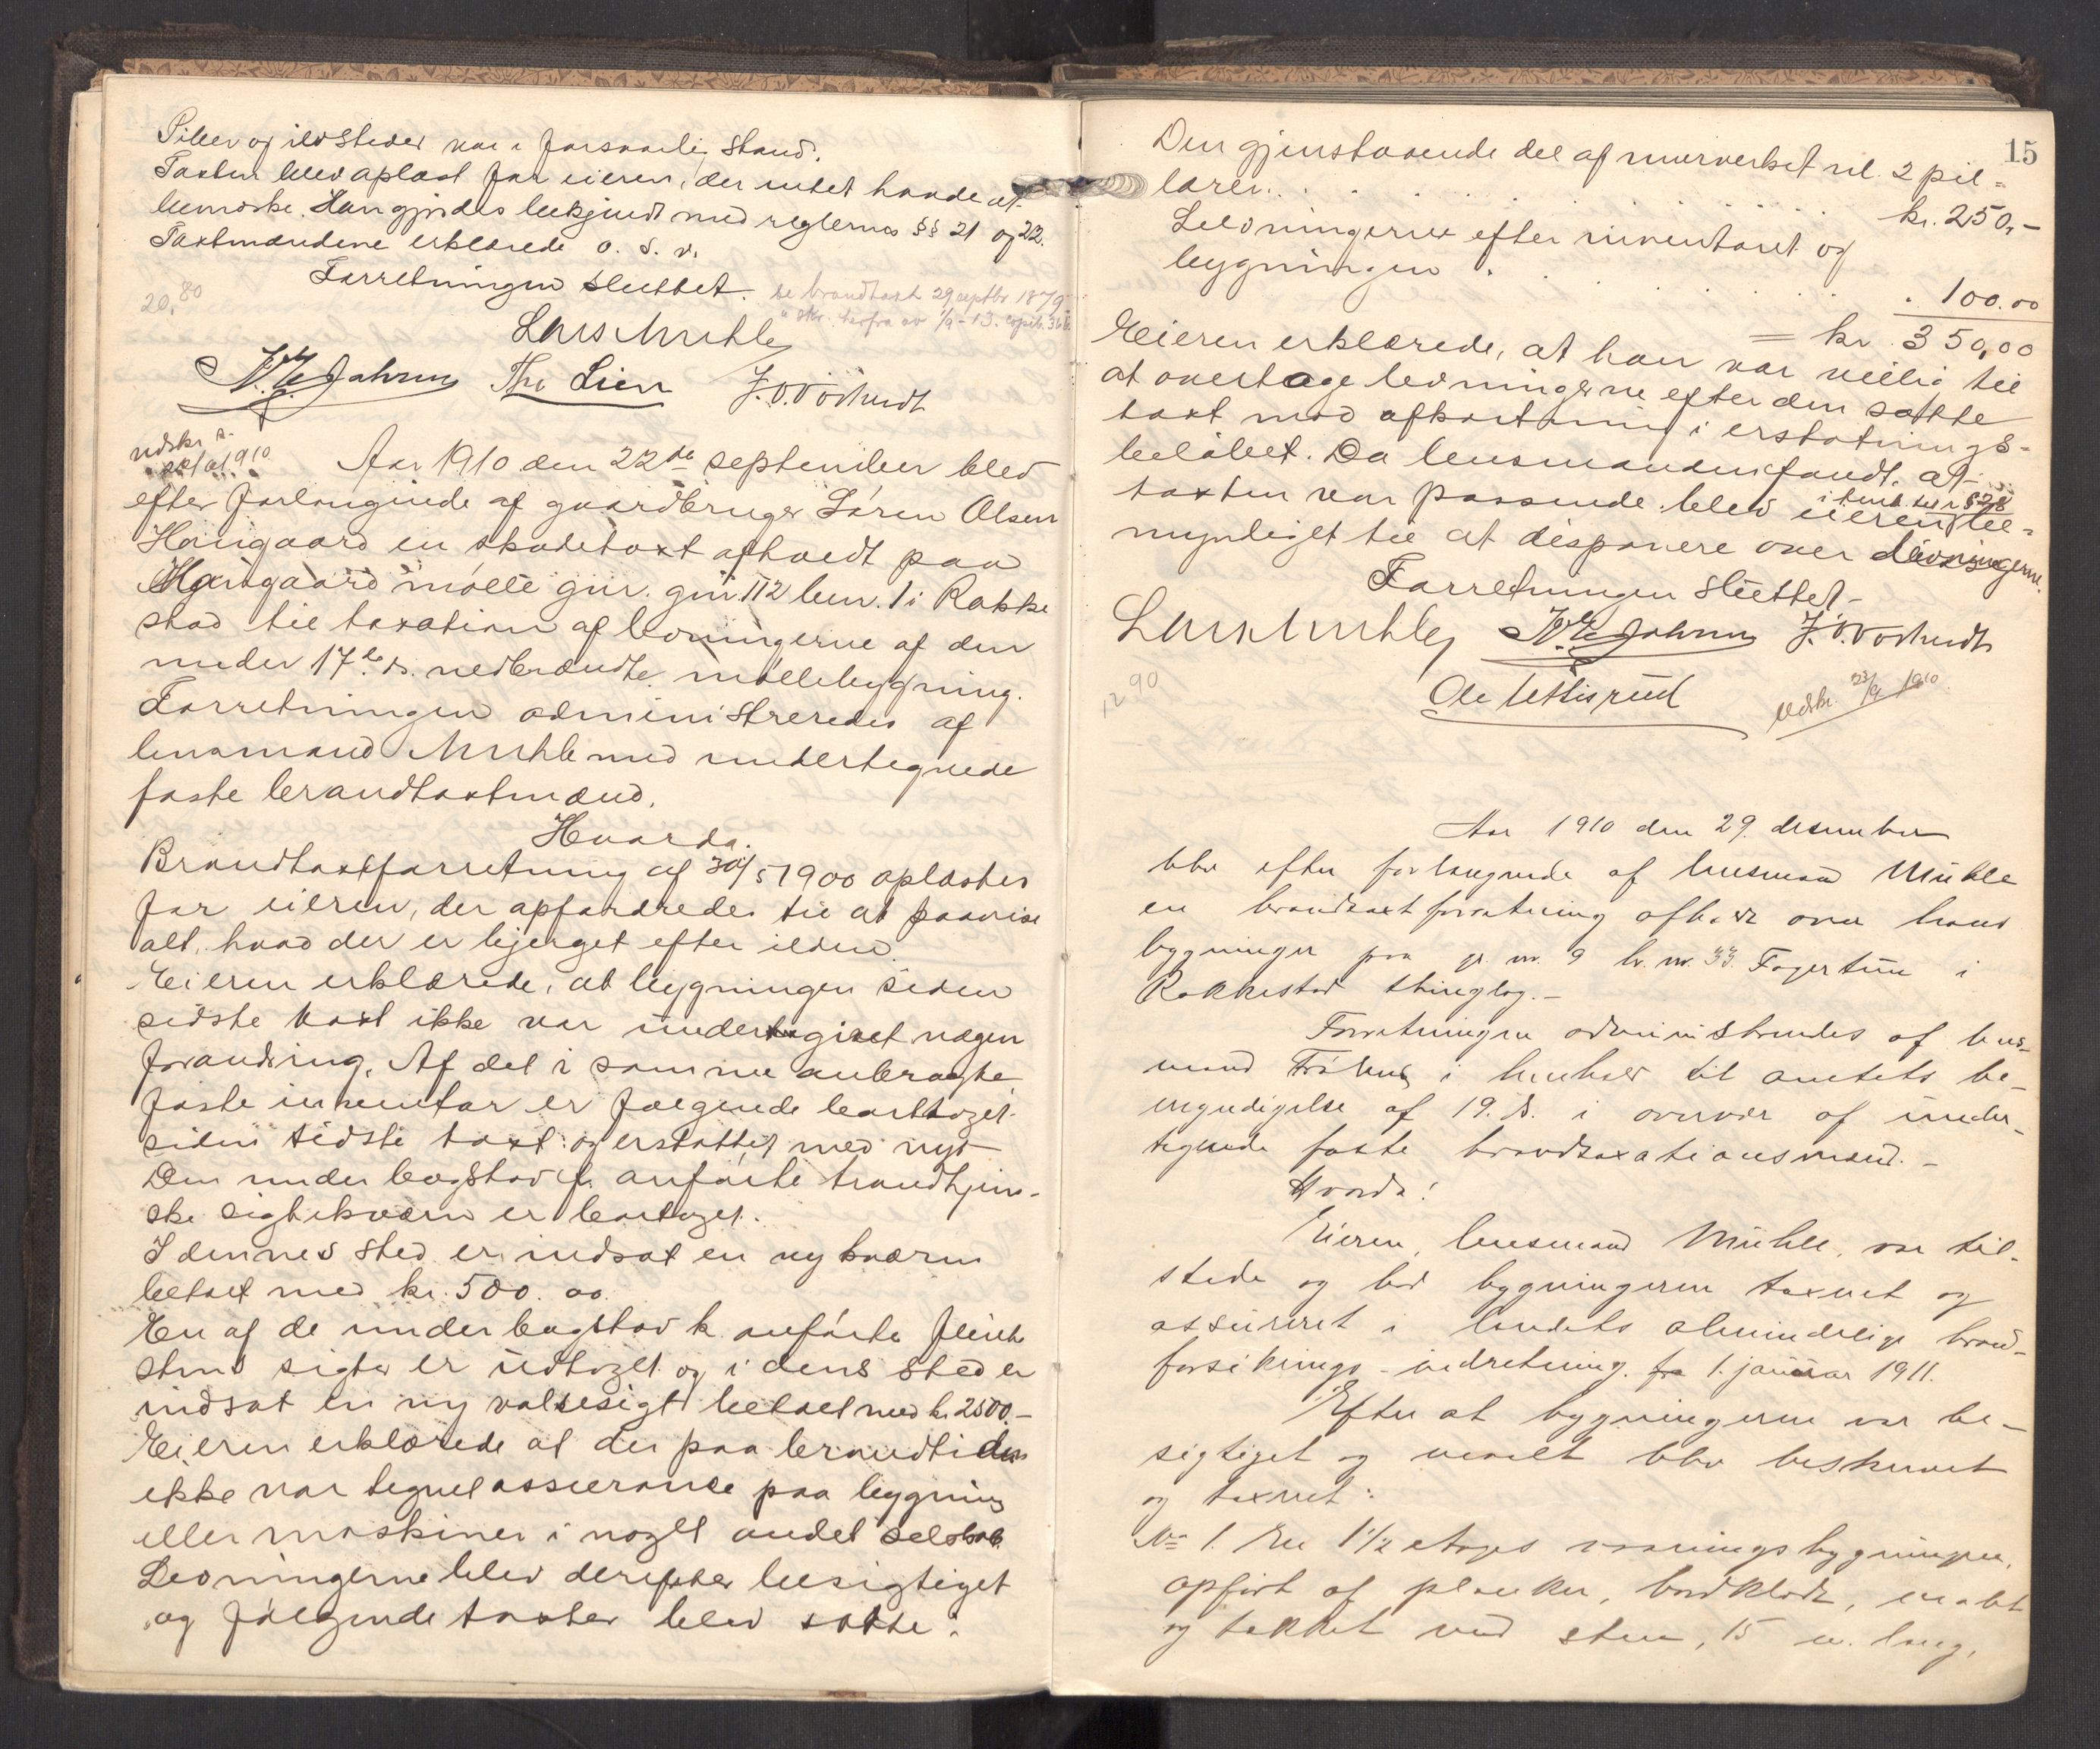 Piber og ildsteder var i forsvarlig stand.
Taxten blev oplæst for eieren, der intet havde at
bemærke. Han gjordes bekjendt med reglernes §§ 21 og 22.
Taxtmændene erklærede o. s. v.
Forretningen sluttet.
se brandtaxt 29 septbr 1879
20,80
Lars Muhle
Th. Lien
udskr.
1910
Aar 1910 den 22de september blev
efter forlangende af gaardbruger Sören Olsen
Haugaard en skadetaxt afholdt paa
Haugaard mölle gnr. 112 brn. 1 i Rakke
stad til taxation af levningerne af den
under 17de ds. nedbrændte möllebygning.
Forretningen administreredes af
lensmand Muhle med undertegnede
faste brandtaxtmænd.
Hvorda:
Brandtaxtforretning af 30/5 1900 oplæstes
for eieren, der opfordredes til at paavise
alt, hvad der er bjerget efter ilden.
Eieren erklærede, at bygningen siden
sidste taxt ikke var undergivet nogen
forandring. Af det i samme anbragte
faste inventar er følgende borttaget
siden sidste taxt og erstattet med nyt
Den under bogstav f. anförte trondhjem-
ske sigtekværn er borttaget.
I dennes sted er indsat en ny kværn
betalt med kr. 500.00.
En af de under bogstav k anförte
sigter er udtaget og i dens sted er
indsat en ny valsesigt betalt med kr. 2500.-
Eieren erklærede at der paa brandtiden
ikke var tegnet assurance paa bygning
eller maskiner i noget andet selskab
Levningerne blev derefter besigtiget
og følgende taxter blev satte:
15
Den gjenstaaende del af murverket nl. 2 pil-
larer. . . . . . . . . kr. 250,-
Levningerne efter inventaret og
bygningen . . . . . . . " 100.00
= kr. 350,00
Eieren erklærede, at han var villig til
at overtage levningerne efter den satte
taxt mod afkortning i erstatnings-
belöbet. Da lensmanden fandt, at
taxten var passende blev eieren i henh. til § 28 be-
myndiget til at disponere over levningerne.
Forretningen sluttet.
Lars Muhle
12 90
Ole Uttisrud
Udskr. 23/9 1910
Aar 1910 den 29. desember
blev efter forlangende af lensmand Mühle
en brandtaxtforretning afholdt over hans
bygninger paa gr. nr. 9 br. nr. 33 Fagertun i
Rakkestad thinglag.-
Forretningen administrertes af lens-
mand i henhold til amtets be-
myndigelse af 19. ds. i overvær af under-
tegnede faste brandtaxationsmænd. -
Hvorda:
Eieren, lensmand Mühle, var til-
stede og bad bygningerne taxeret og
assureret i landets almindelige brand-
forsikrings-indretning. fra 1. januar 1911.
Efter at bygningerne var be-
sigtiget og maalt blev beskrevet
og taxeret:
No 1. En 1 1/2 etages vaaningsbygningen,
opført af planker, bordklædt, malet
og tækket med sten, 15 m. lang,